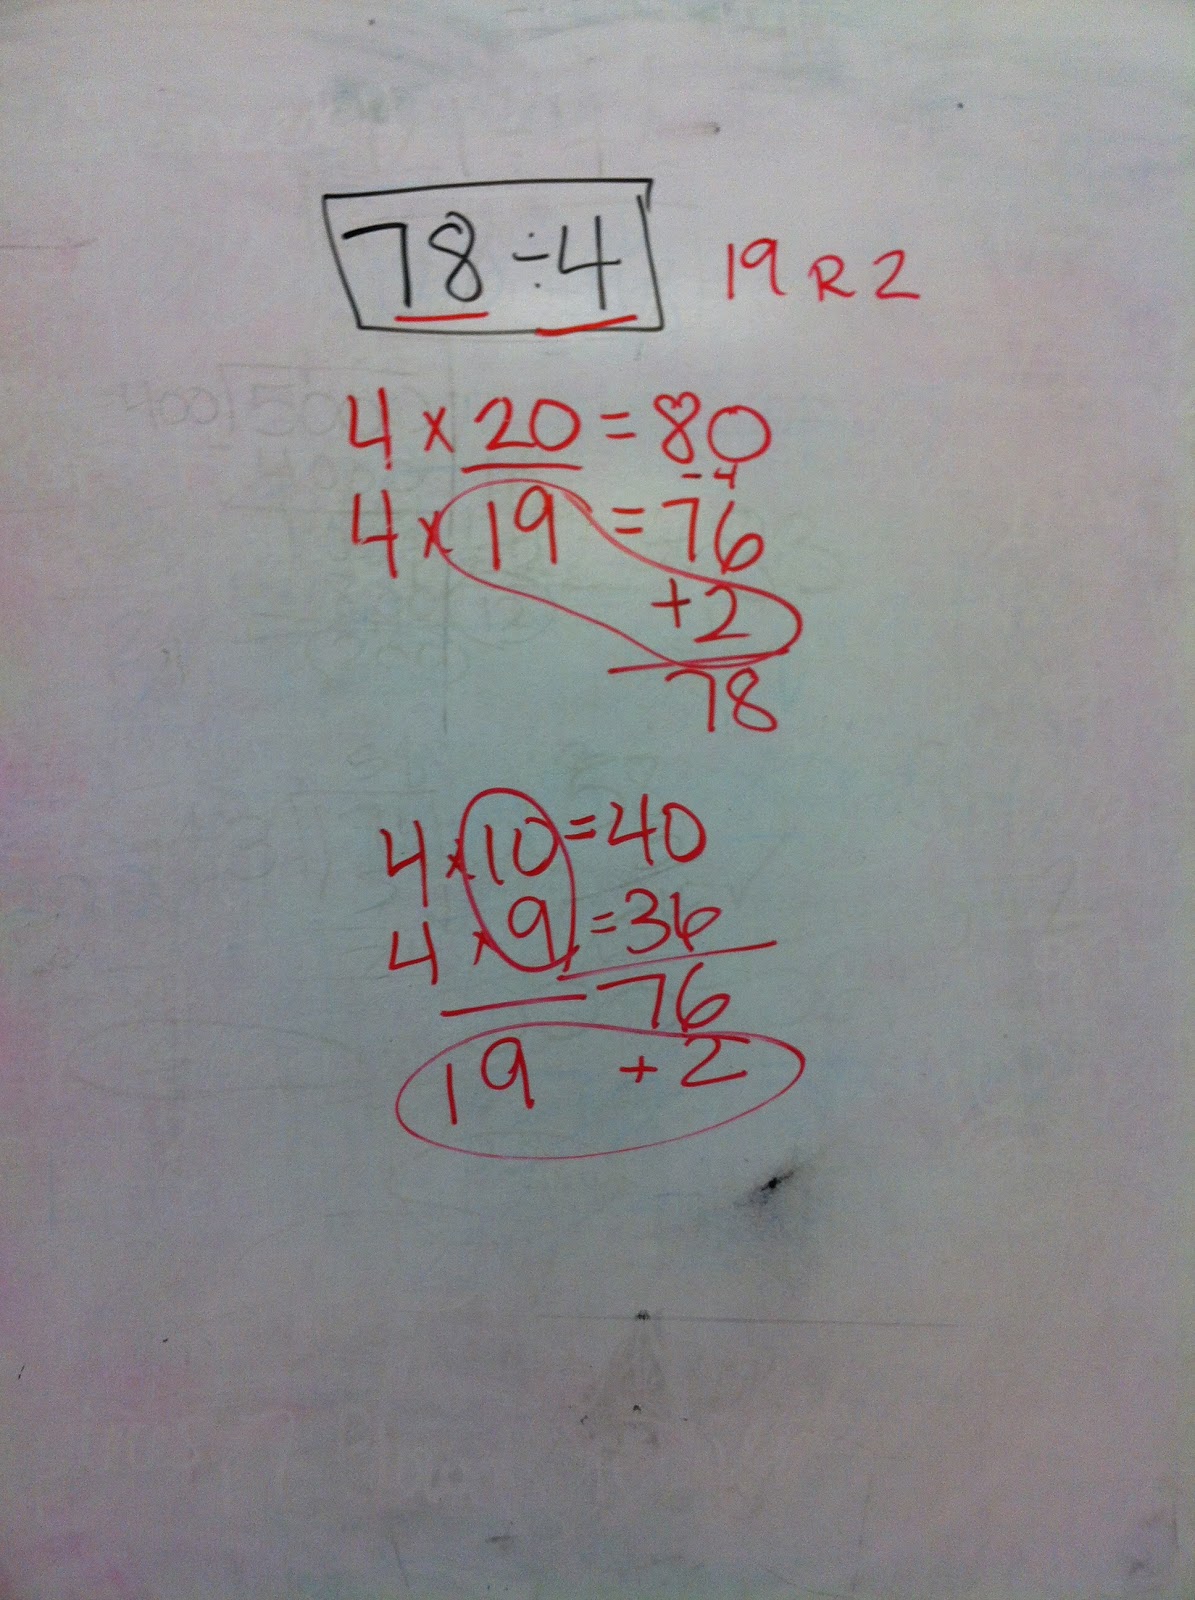 78 ÷ 4 19 R 2
4 x 20 = 80
- 4
4 x 19 = 76
+ 2
78
4 x 10 = 40
4 x 9 = 36
76
19 + 2